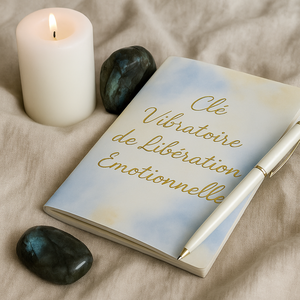 Clé
Vibratoire
de Libération
Emotionnelle